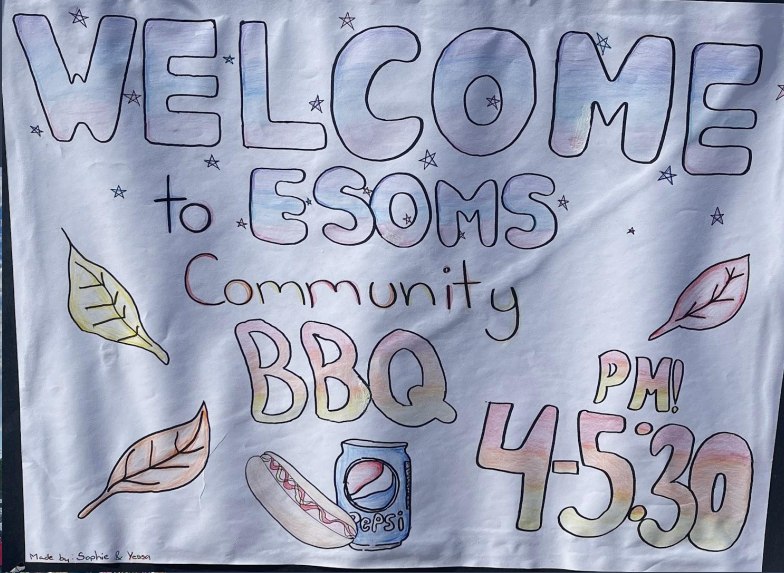 WELCOME
to ESOMS
Community
BBQ
PM!
4-5:30
Pepsi
Made by: Sophie & Yessa